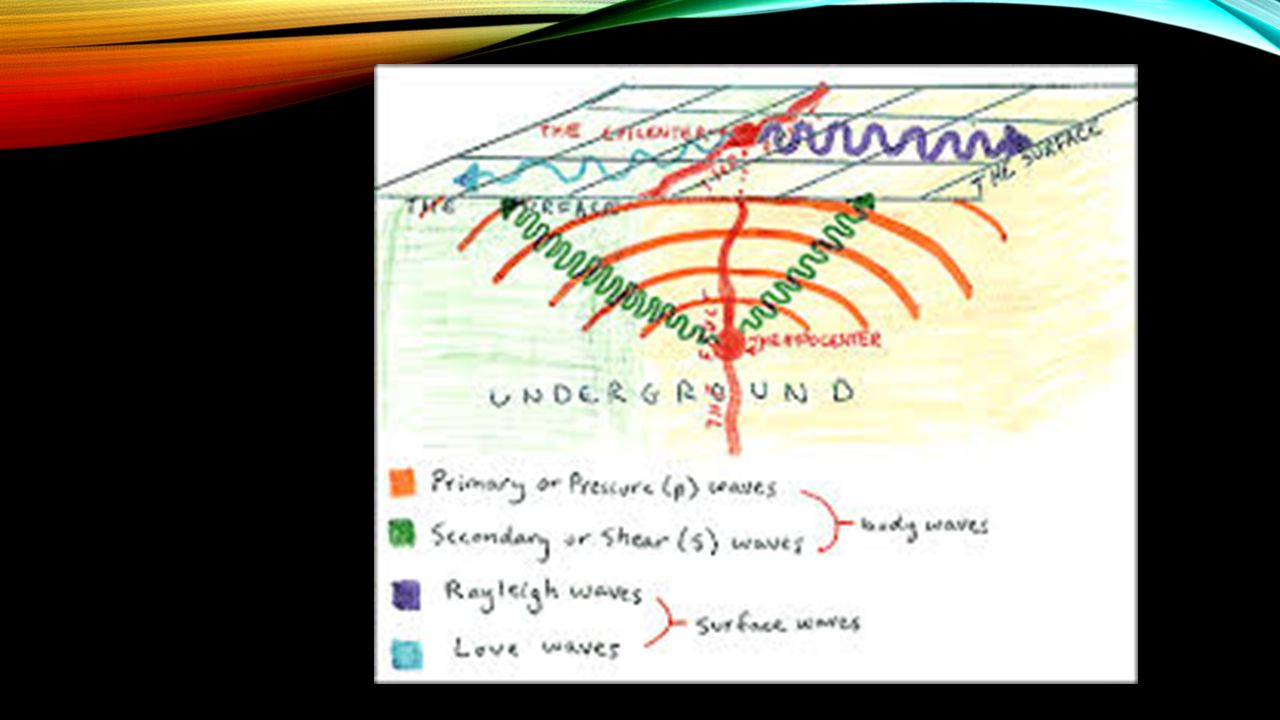 THE EPICENTER
THE SURFACE
THE SURFACE
THE FAULT
THE HYPOCENTER
UNDERGROUND
Primary or Pressure (p) waves
Secondary or Shear (S) waves
body waves
Rayleigh waves
Love waves
surface waves